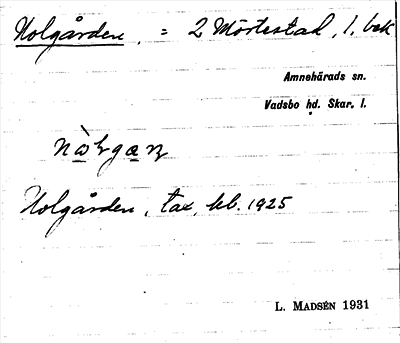 Nolgården, = 2 Mörtestad, 1. bek
Amnehärads sn.
Vadsbo hd. Skar. l.
Nolgården, tax. kb. 1925
L. MADSÉN 1931